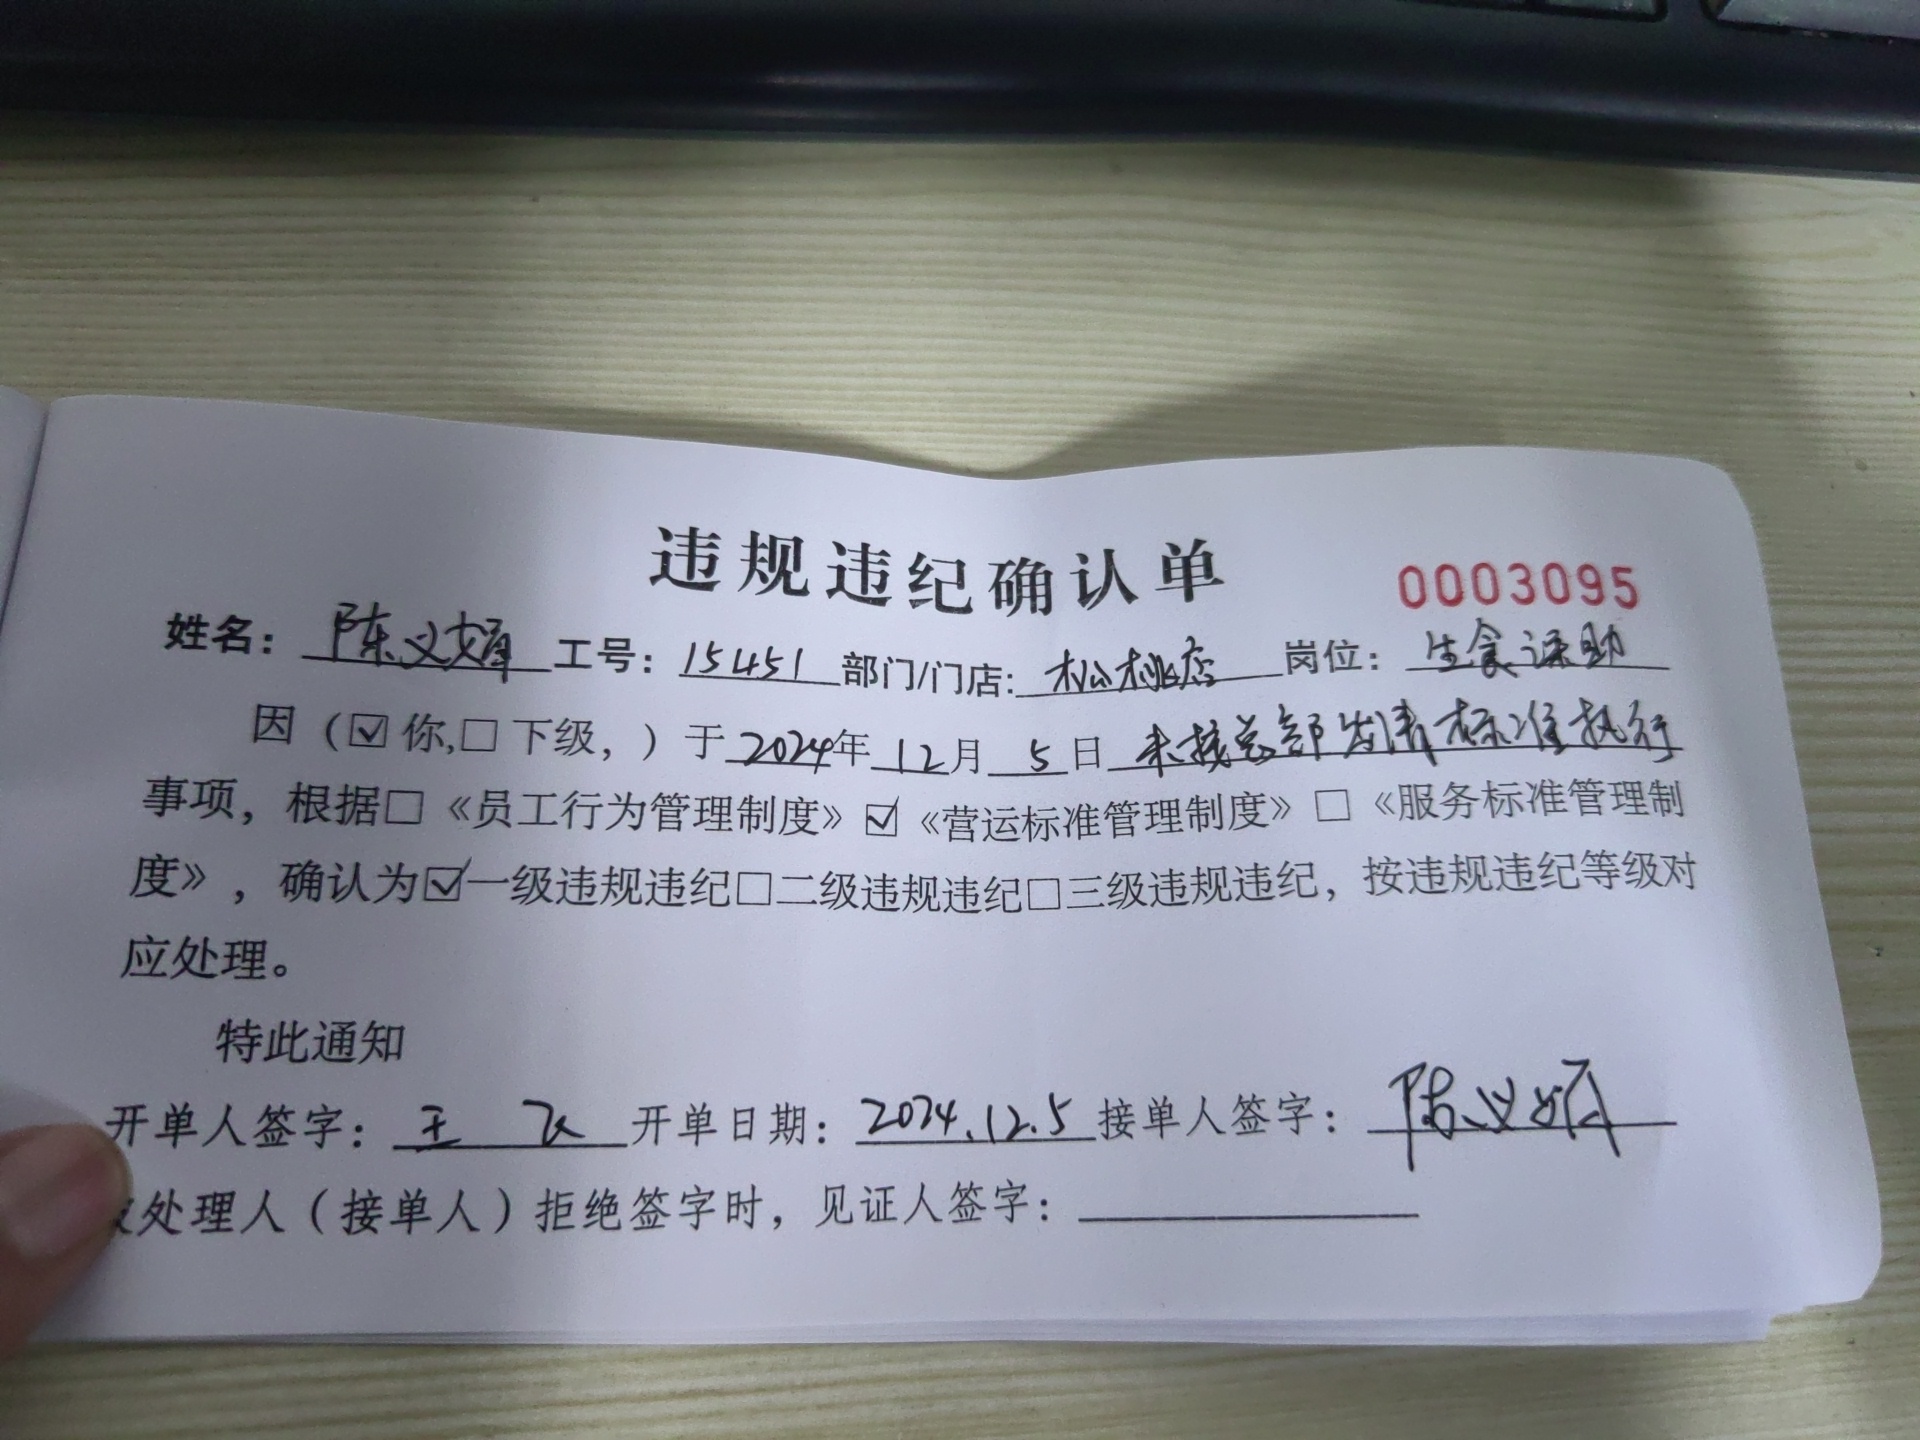 违规违纪确认单 0003095
姓名：陈义娟 工号：15451 部门/门店：松桃店 岗位：生食课助
因（☑你,☐下级，）于2024年12月5日 未按总部发清标准执行
事项，根据☐《员工行为管理制度》☑《营运标准管理制度》☐《服务标准管理制
度》，确认为☑一级违规违纪☐二级违规违纪☐三级违规违纪，按违规违纪等级对
应处理。
特此通知
开单人签字：王飞 开单日期：2024.12.5 接单人签字：陈义娟
处理人（接单人）拒绝签字时，见证人签字：